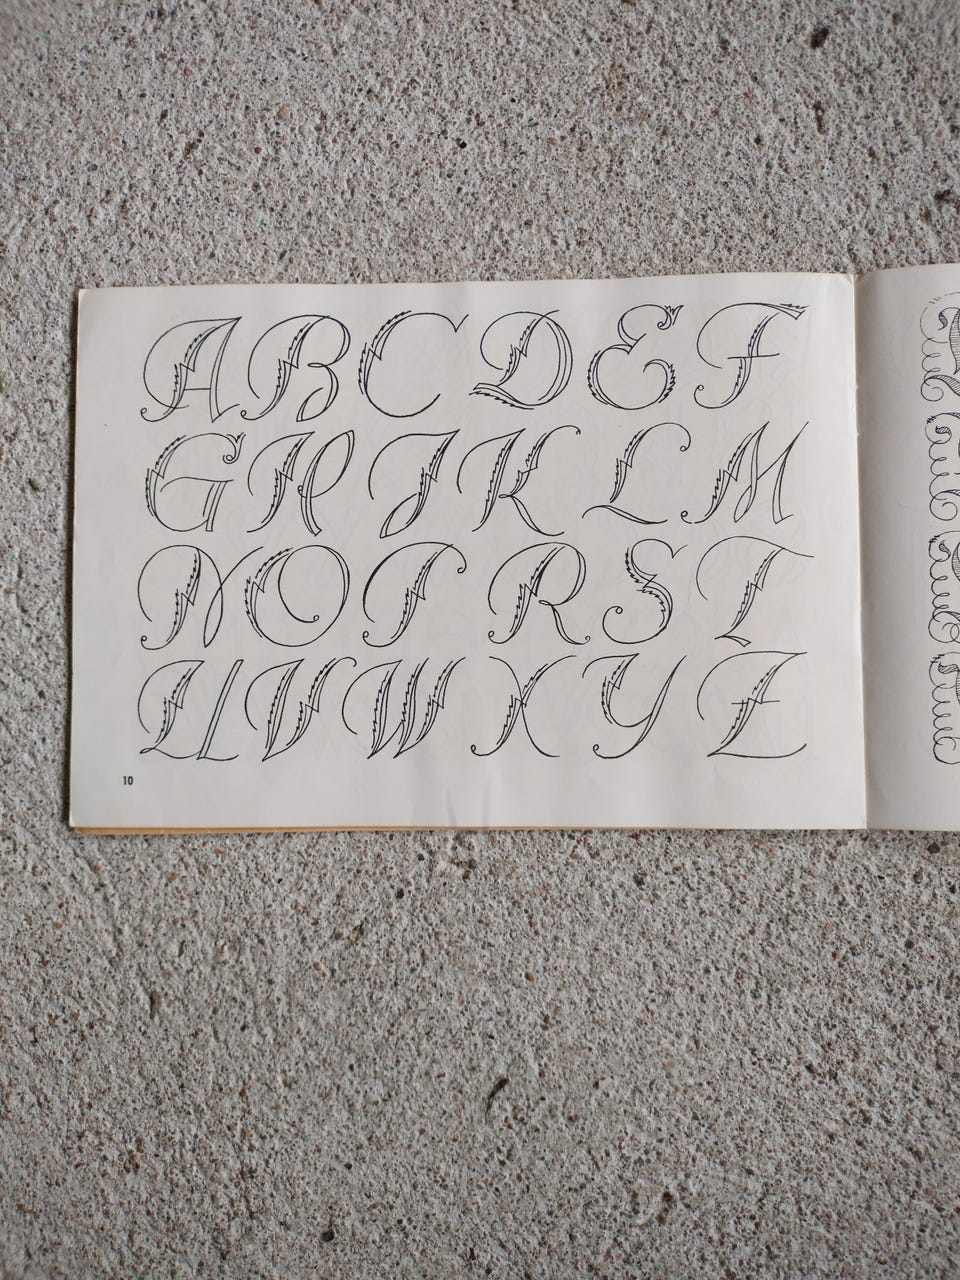 A B C D E F
G H J K L M
N O P R S T
U V W X Y Z
10